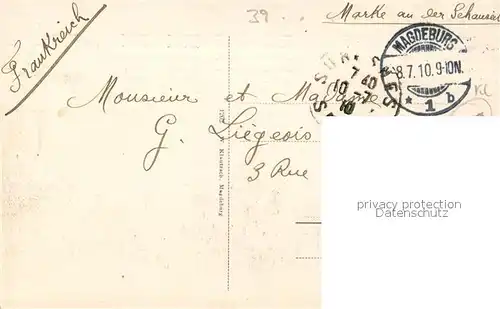 Frankreich
39
Marke an der Schauseite
MAGDEBURG
8.7.10.9-10N.
* 1 b
7 40
10 -7
10
Monsieur et Madame
G. Liégeois
3 Rue
privacy protection
Datenschutz